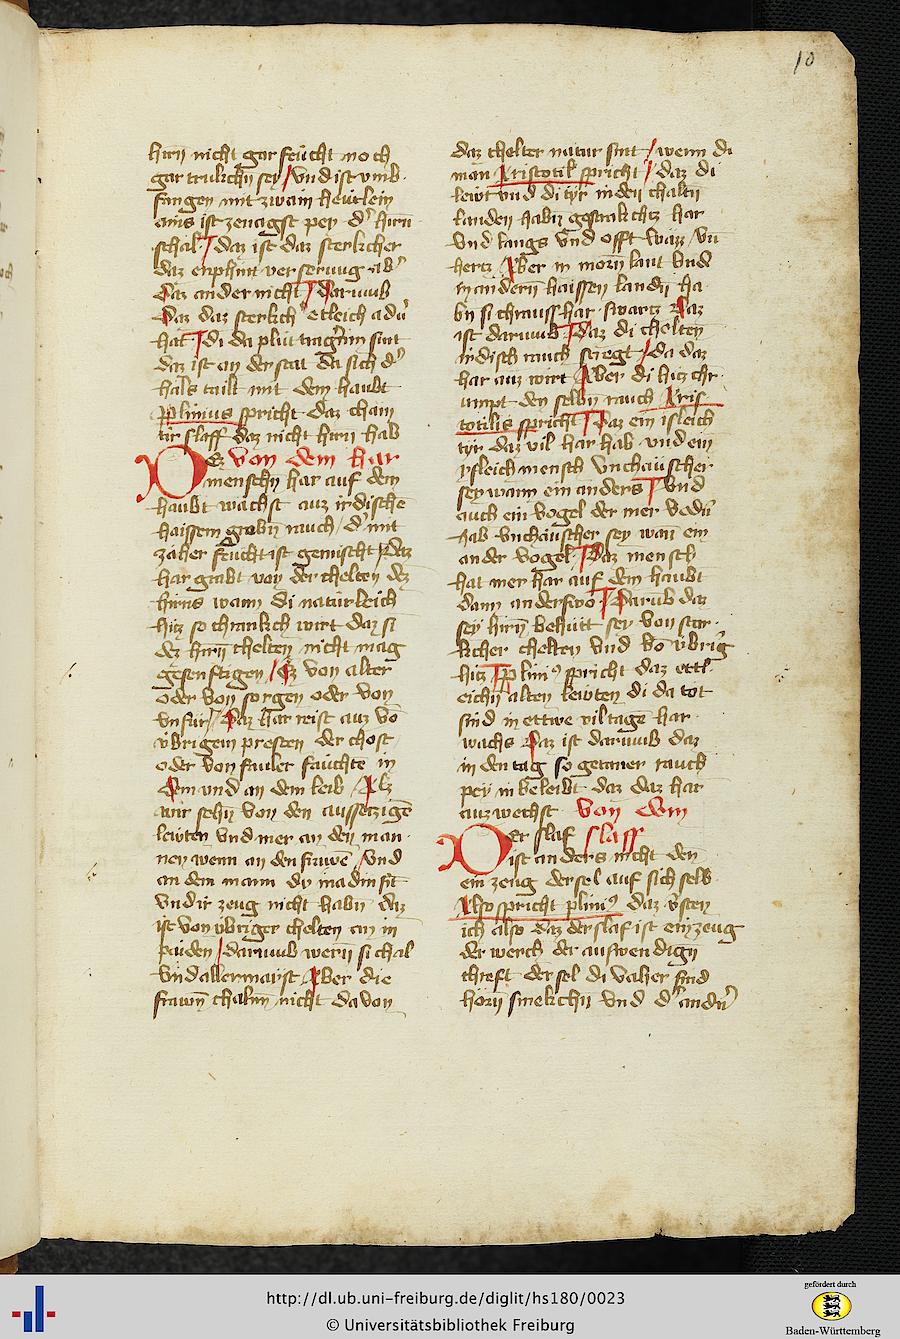 10
hirn nicht gar feucht noch
gar trukchn sey / vnd ist vmb
fangen mit zwain heutlein
ains ist zenagst pey d' hirn
schal / daz ist daz sterkcher
daz enphint verserung ab'
Daz ander nicht / Darumb
Daz daz sterkch etleich adn'
hat / di da plut tragn'nn sint
daz ist an der stat da sich d'
hals tailt mit dem haubt
Plinius spricht daz cham
tir slaff daz nicht hirn hab
Von dem har
Dez
menschn har auf dem
haubt wachst auz irdische
haissem grobn rauch / d' mit
zaher feucht ist gemischt / daz
har grabt von der chelten dez
hirns wann di naturleich
hitz so chrankch wirt daz si
dez hirn chelten nicht mag
gesenftigen / Ez von alter
oder von sorgen oder von
vnfur / Daz har reist auz vo
vbrigem presten der chost
oder von fauler fauchte in
dem vnd an dem leib / Alz
wir sehn von den aussetzige
lewten vnd mer an den man
nen wenn an den frawe / vnd
an dem mann dy inadin sit
vnd ir zeug nicht habn daz
ist von vbriger chelten an in
paiden / darumb wern si chal
vnd allermayst / Aber die
frawn chalnn nicht da von
daz chelter natur sint / wenn di
man Aristotil spricht / daz di
lewt vnd di tyr in den chaltn
landen habn gestrakchtz har
vnd langs vnd offt waz / vn
hertz / Aber in morn lant vnd
in andern haissen landn ha
bn si chrauss har swartz Daz
ist darumb / Daz di chelten
irdisch rauch steegt / da daz
har auz wirt Aber di hitz chr
umpt den selbn rauch Aris
totilis spricht / Daz ein isleich
tyr daz vil har hab vnd ein
ysleich mensch vnchäuscher
sey wann ein anders / Vnd
auch ein vogel der mer vedn'
hab vnchäuscher sey wan ein
ander vogel / Daz mensch
hat mer har auf dem haubt
dann anderswo / Darub daz
sey hirn behütt sey von star
kcher chelten vnd vo vbrig
hitz / Plini9 spricht daz ettl
eichn alten lewten di da tot
sind in ettwe vil tage har
wachs Daz ist darumb daz
in den tag so getaner rauch
pey in beleibt daz daz har
auz wechst Von dem
slaff
Der slaf
ist anders nicht den
ein zeug der sel auf sich selb
Also spricht plini9 daz vsten
ich also daz der slaf ist ein zeug
der werch der auswendign
chreft der sel di da her sind
hörn smekchn vnd d' andn'
gefördert durch
http://dl.ub.uni-freiburg.de/diglit/hs180/0023
© Universitätsbibliothek Freiburg
Baden-Württemberg